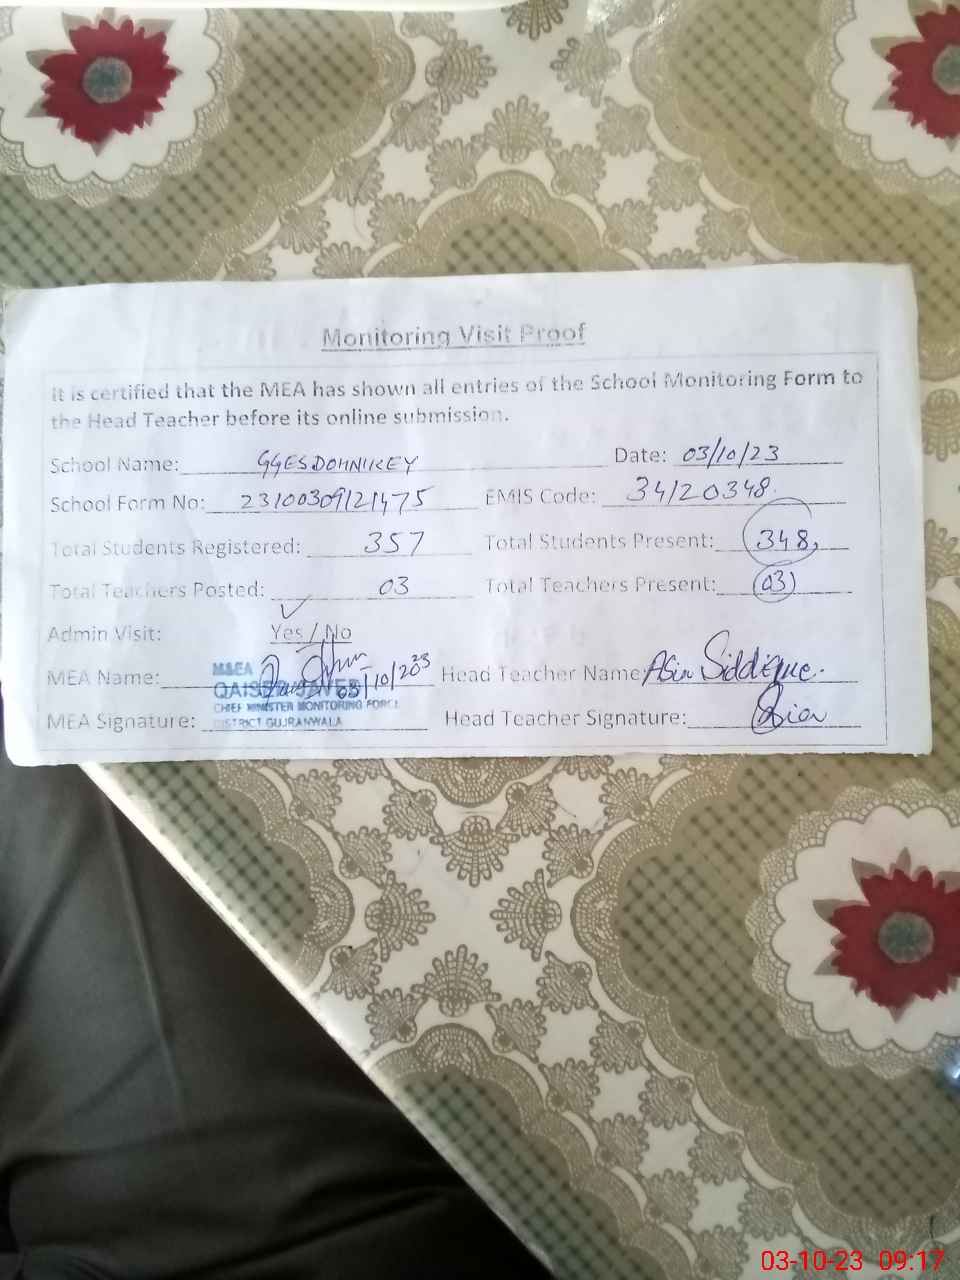 Monitoring Visit Proof
It is certified that the MEA has shown all entries of the School Monitoring Form to
the Head Teacher before its online submission.
School Name: GGES DOHNIKEY Date: 03/10/23
School Form No: 23100309121475 EMIS Code: 34120348
Total Students Registered: 357 Total Students Present: 348,
Total Teachers Posted: 03 Total Teachers Present: 03
Admin Visit: Yes / No
MEA Name: M&EA 03/10/2023 Head Teacher Name: Siddique.
QAISER
CHIEF MINISTER MONITORING FORCE
MEA Signature: DISTRICT GUJRANWALA Head Teacher Signature:
03-10-23 09:17